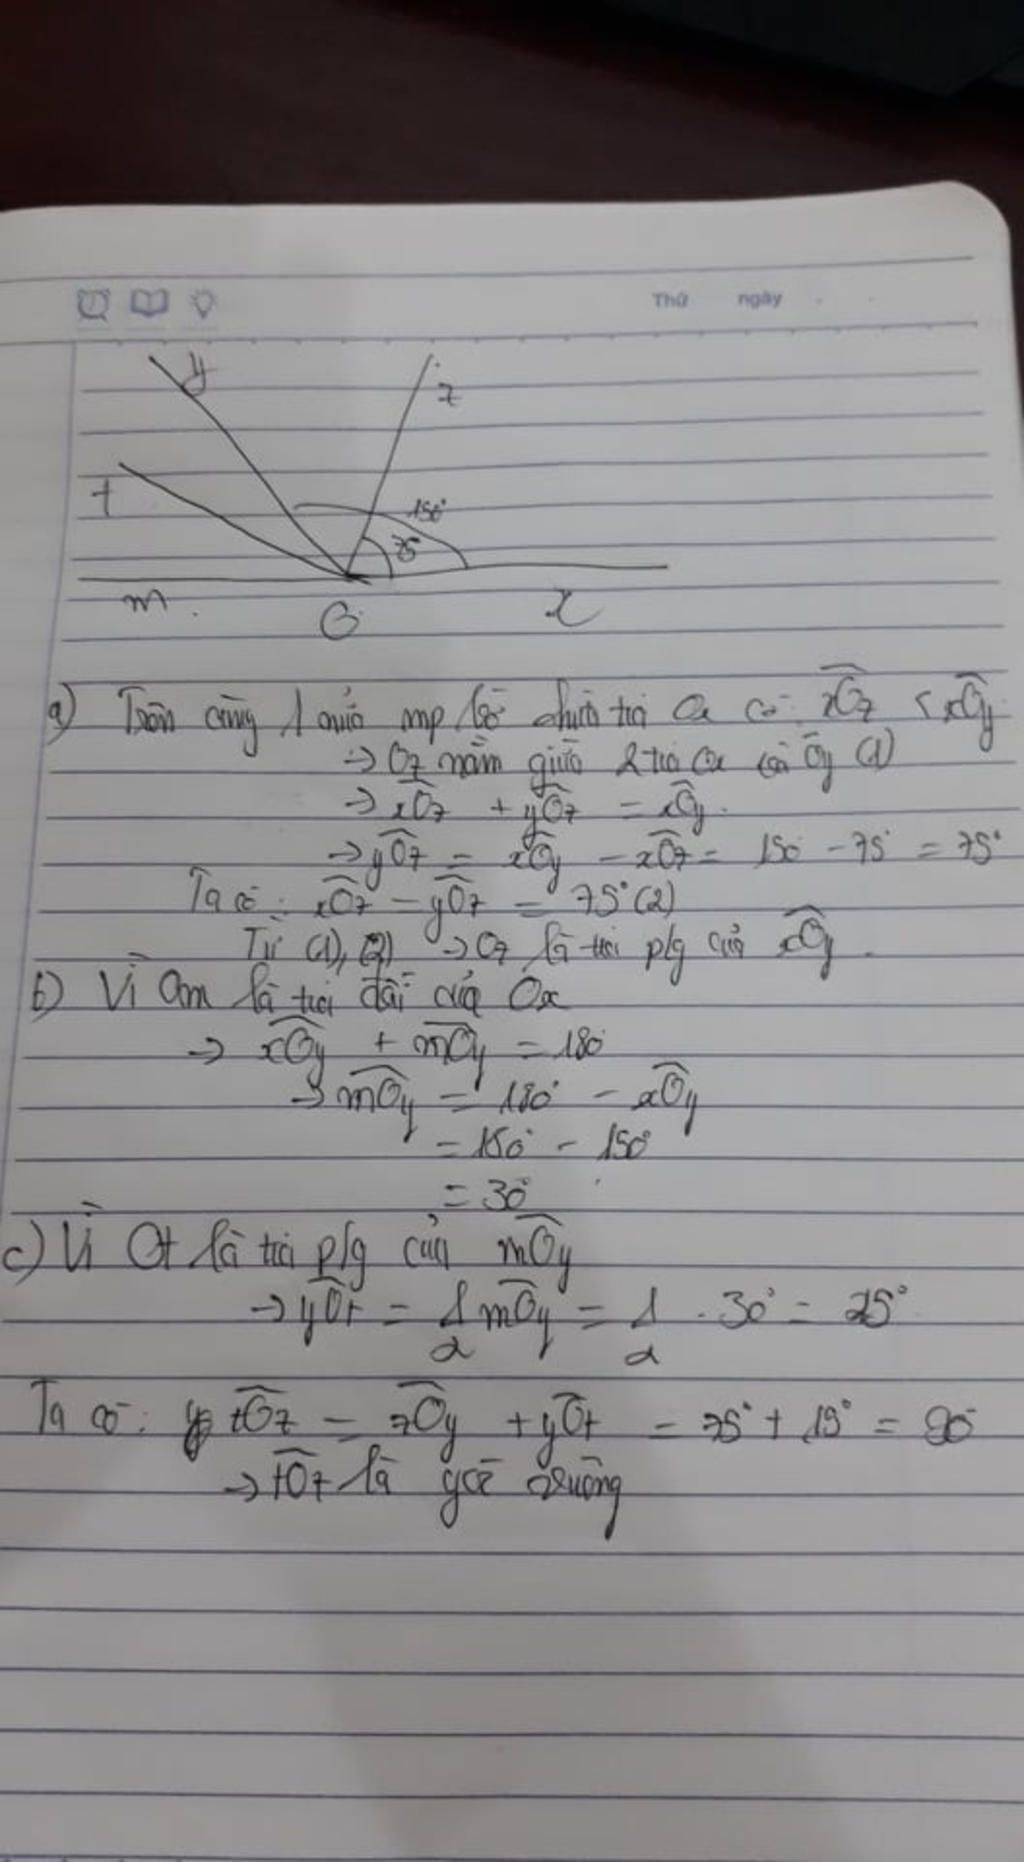 Thứ ngày
y
z
t
150°
75
m
O
x
a) Trên cùng 1 nửa mp bờ chứa tia Ox có: xOz < xOy
→ Oz nằm giữa 2 tia Ox và Oy (1)
→ xOz + yOz = xOy.
→ yOz = xOy - xOz = 150 - 75 = 75°
Ta có: xOz = yOz = 75° (2)
Từ (1), (2) → Oz là tia p/g của xOy.
b) Vì Om là tia đối của Ox
→ xOy + mOy = 180
→ mOy = 180° - xOy
= 180° - 150°
= 30°
c) Vì Ot là tia p/g của mOy
→ yOt = 1/2 mOy = 1/2 . 30° = 15°
Ta có: tOz = zOy + yOt = 75° + 15° = 90°
→ tOz là góc vuông